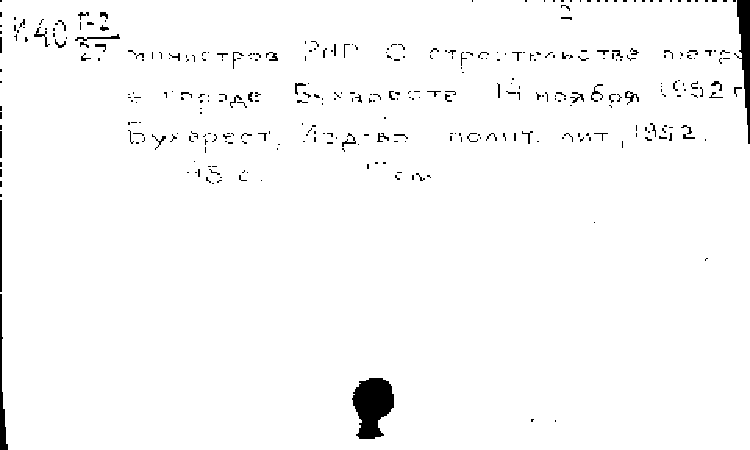 2
И.40 Г-2
27
министров РНР О строительстве метро
в городе Бухаресте 14 ноября 1952 г
Бухарест, Изд-во полит. лит, 1952.
48 с. см